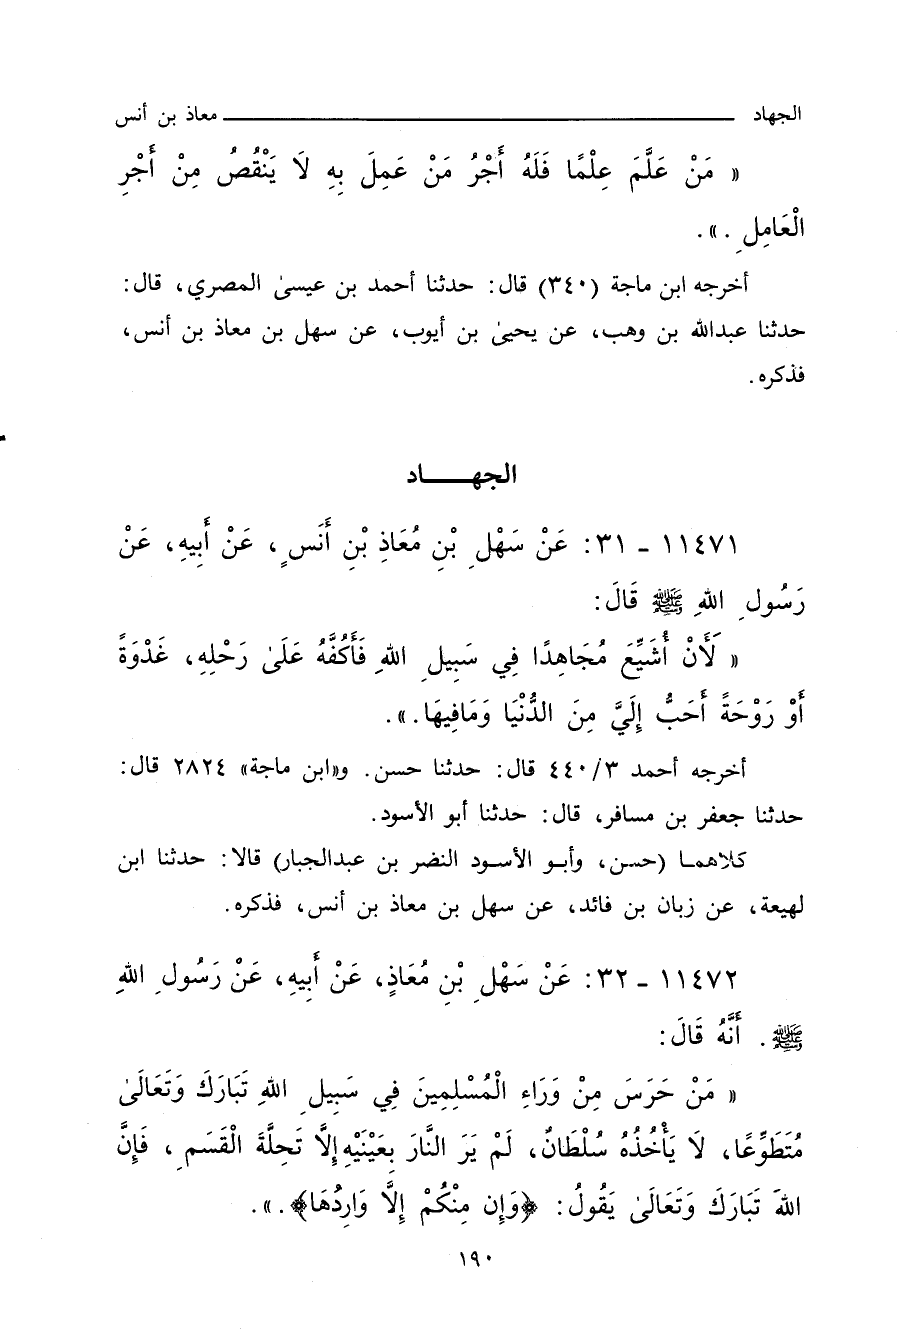 الجهاد ــــــــــــــــــــ معاذ بن أنس
« مَنْ عَلَّمَ عِلْمًا فَلَهُ أَجْرُ مَنْ عَمِلَ بِهِ لاَ يَنْقُصُ مِنْ أَجْرِ
الْعَامِلِ . ».
أخرجه ابن ماجة (٣٤٠) قال: حدثنا أحمد بن عيسىٰ المصري، قال:
حدثنا عبدالله بن وهب، عن يحيىٰ بن أيوب، عن سهل بن معاذ بن أنس،
فذكره.
الجهــــاد
١١٤٧١ - ٣١: عَنْ سَهْلِ بْنِ مُعَاذِ بْنِ أَنَسٍ، عَنْ أَبِيهِ، عَنْ
رَسُولِ اللهِ ﷺ قَالَ:
« لَأَنْ أُشَيِّعَ مُجَاهِدًا فِي سَبِيلِ اللهِ فَأَكُفَّهُ عَلَىٰ رَحْلِهِ، غَدْوَةً
أَوْ رَوْحَةً أَحَبُّ إِلَيَّ مِنَ الدُّنْيَا وَمَافِيهَا. ».
أخرجه أحمد ٤٤٠/٣ قال: حدثنا حسن. و«ابن ماجة» ٢٨٢٤ قال:
حدثنا جعفر بن مسافر، قال: حدثنا أبو الأسود.
كلاهما (حسن، وأبو الأسود النضر بن عبدالجبار) قالا: حدثنا ابن
لهيعة، عن زبان بن فائد، عن سهل بن معاذ بن أنس، فذكره.
١١٤٧٢ - ٣٢: عَنْ سَهْلِ بْنِ مُعَاذٍ، عَنْ أَبِيهِ، عَنْ رَسُولِ اللهِ
ﷺ. أَنَّهُ قَالَ:
« مَنْ حَرَسَ مِنْ وَرَاءِ الْمُسْلِمِينَ فِي سَبِيلِ اللهِ تَبَارَكَ وَتَعَالَىٰ
مُتَطَوِّعًا، لاَ يَأْخُذُهُ سُلْطَانٌ، لَمْ يَرَ النَّارَ بِعَيْنَيْهِ إِلَّا تَحِلَّةَ الْقَسَمِ، فَإِنَّ
اللهَ تَبَارَكَ وَتَعَالَىٰ يَقُولُ: ﴿وَإِن مِنْكُمْ إِلَّا وَارِدُهَا﴾. ».
١٩٠